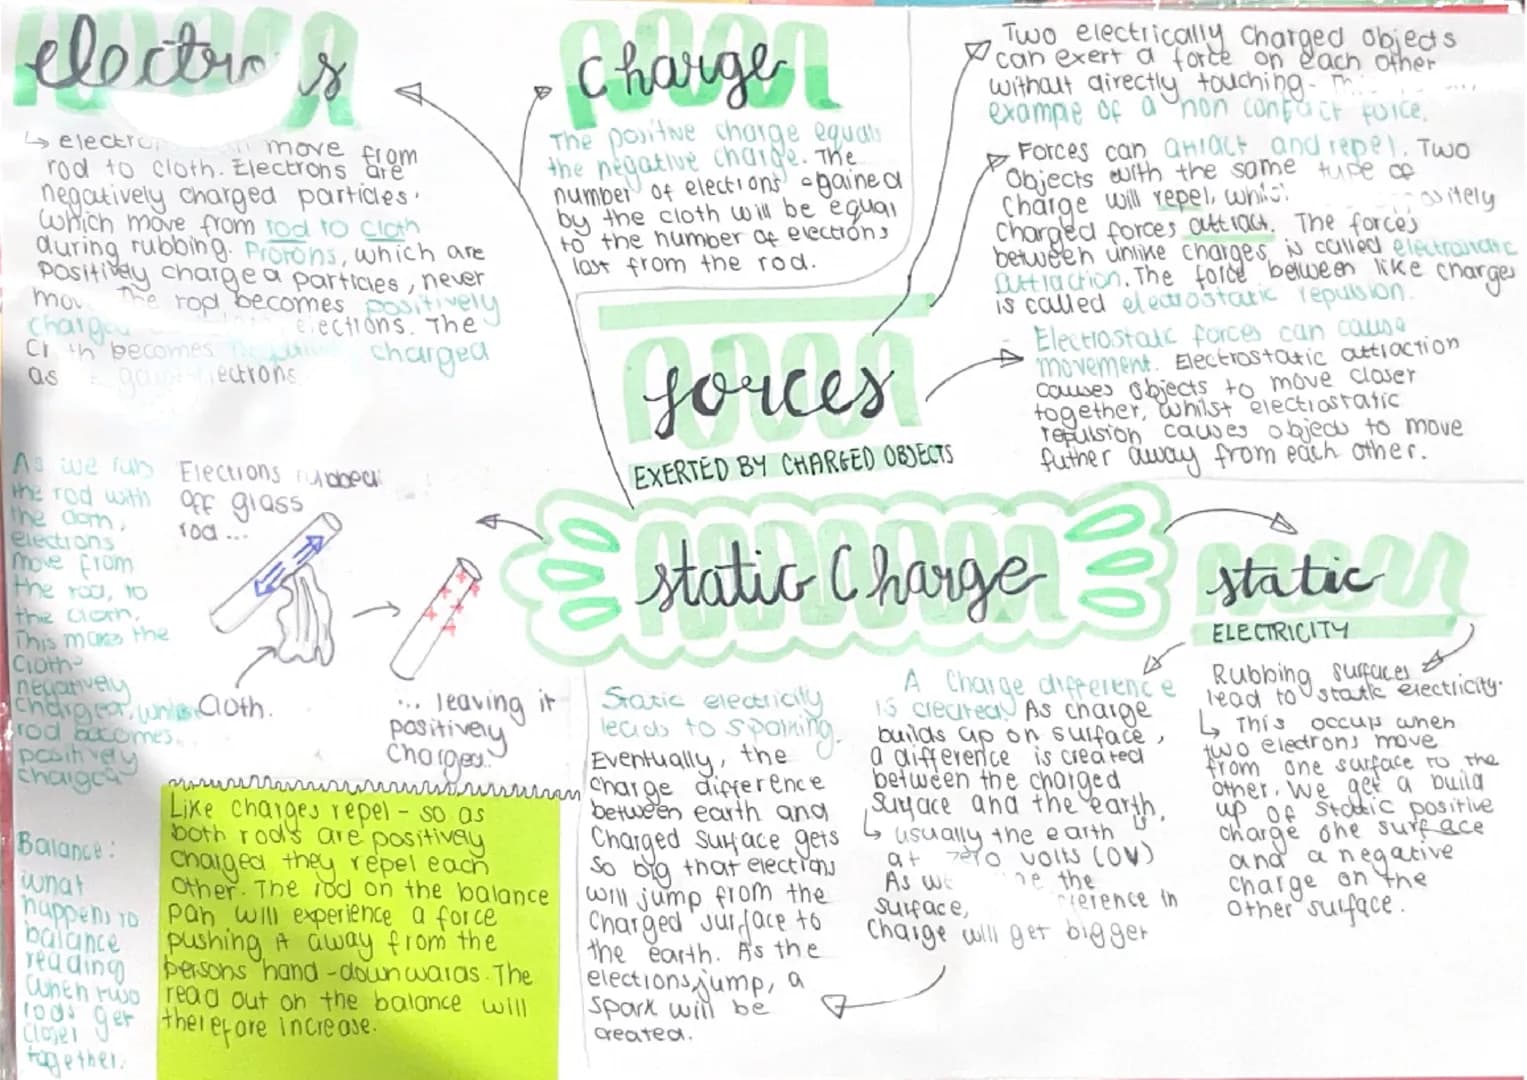 electro s
↳ electro move from
rod to cloth. Electrons are
negatively charged particles.
which move from rod to cloth
during rubbing. Protons, which are
positively charged particles, never
mov The rod becomes positively
charged elections. The
Cl th becomes charged
as gain ections
charge
The positive charge equals
the negative charge. The
number of elections gained
by the cloth will be equal
to the number of elections
lost from the rod.
Two electrically charged objects
can exert a force on each other
without directly touching-
example of a non contact force.
Forces can attract and repel. Two
Objects with the same type of
Charge will repel, whils ositely
Charged forces attract. The forces
between unlike charges, is called electrostatic
attraction. The force between like charges
is called electrostatic repulsion.
Electrostatic forces can cause
movement. Electrostatic attraction
causes objects to move closer
together, whilst electrostatic
repulsion causes objects to move
futher away from each other.
forces
EXERTED BY CHARGED OBJECTS
static Charge
As we rub
the rod with
the cloth,
elections
move from
the rod, to
the cloth.
This makes the
Cloth
negatively
charged, whilst
rod becomes
positively
charged
Elections rubbed
off glass
rod ...
Cloth.
... leaving it
positively
Charged.
Balance:
what
happens to
balance
reading
when two
rods get
closer
together.
Like charges repel - so as
both rods are positively
charged they repel each
other. The rod on the balance
pan will experience a force
pushing it away from the
persons hand - downwards. The
read out on the balance will
therefore increase.
static
ELECTRICITY
Static electricity
leads to sparking.
Eventually, the
charge difference
between earth and
Charged surface gets
so big that elections
will jump from the
Charged surface to
the earth. As the
elections, jump, a
spark will be
created.
A Charge difference
is created. As charge
builds up on surface,
a difference is created
between the charged
surface and the earth.
↳ usually the earth
at zero volts (0V)
As we the
surface, ference in
Charge will get bigger
Rubbing surfaces
lead to static electricity.
↳ This occurs when
two electrons move
from one surface to the
other. We get a build
up of static positive
charge one surface
and a negative
charge on the
other surface.